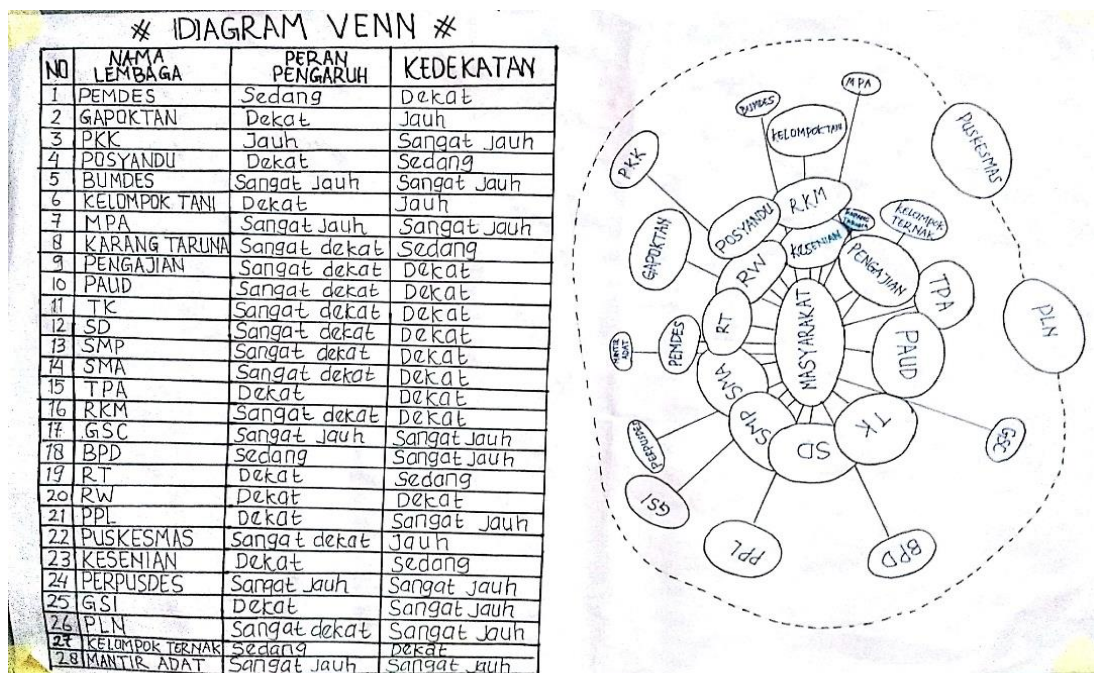 * DIAGRAM VENN *
NO NAMA LEMBAGA PERAN PENGARUH KEDEKATAN
1 PEMDES Sedang Dekat
2 GAPOKTAN Dekat Jauh
3 PKK Jauh Sangat Jauh
4 POSYANDU Dekat Sedang
5 BUMDES Sangat Jauh Sangat Jauh
6 KELOMPOK TANI Dekat Jauh
7 MPA Sangat Jauh Sangat Jauh
8 KARANG TARUNA Sangat dekat Sedang
9 PENGAJIAN Sangat dekat Dekat
10 PAUD Sangat dekat Dekat
11 TK Sangat dekat Dekat
12 SD Sangat dekat Dekat
13 SMP Sangat dekat Dekat
14 SMA Sangat dekat Dekat
15 TPA Dekat Dekat
16 RKM Sangat dekat Dekat
17 GSC Sangat Jauh Sangat Jauh
18 BPD Sedang Sangat Jauh
19 RT Dekat Sedang
20 RW Dekat Dekat
21 PPL Dekat Sangat Jauh
22 PUSKESMAS Sangat dekat Jauh
23 KESENIAN Dekat Sedang
24 PERPUSDES Sangat Jauh Sangat Jauh
25 GSI Dekat Sangat Jauh
26 PLN Sangat dekat Sangat Jauh
27 KELOMPOK TERNAK Sedang Dekat
28 MANTIR ADAT Sangat Jauh Sangat Jauh
MPA
BUMDES
KELOMPOK TANI
PUSKESMAS
PKK
RKM
POSYANDU
KARANG TARUNA
KELOMPOK
TERNAK
KESENIAN
GAPOKTAN
RW
PENGAJIAN
TPA
PLN
RT
MASYARAKAT
PAUD
MANTIR
ADAT
PEMDES
SMA
SMP
SD
TK
GSC
PERPUSDES
GSI
PPL
BPD